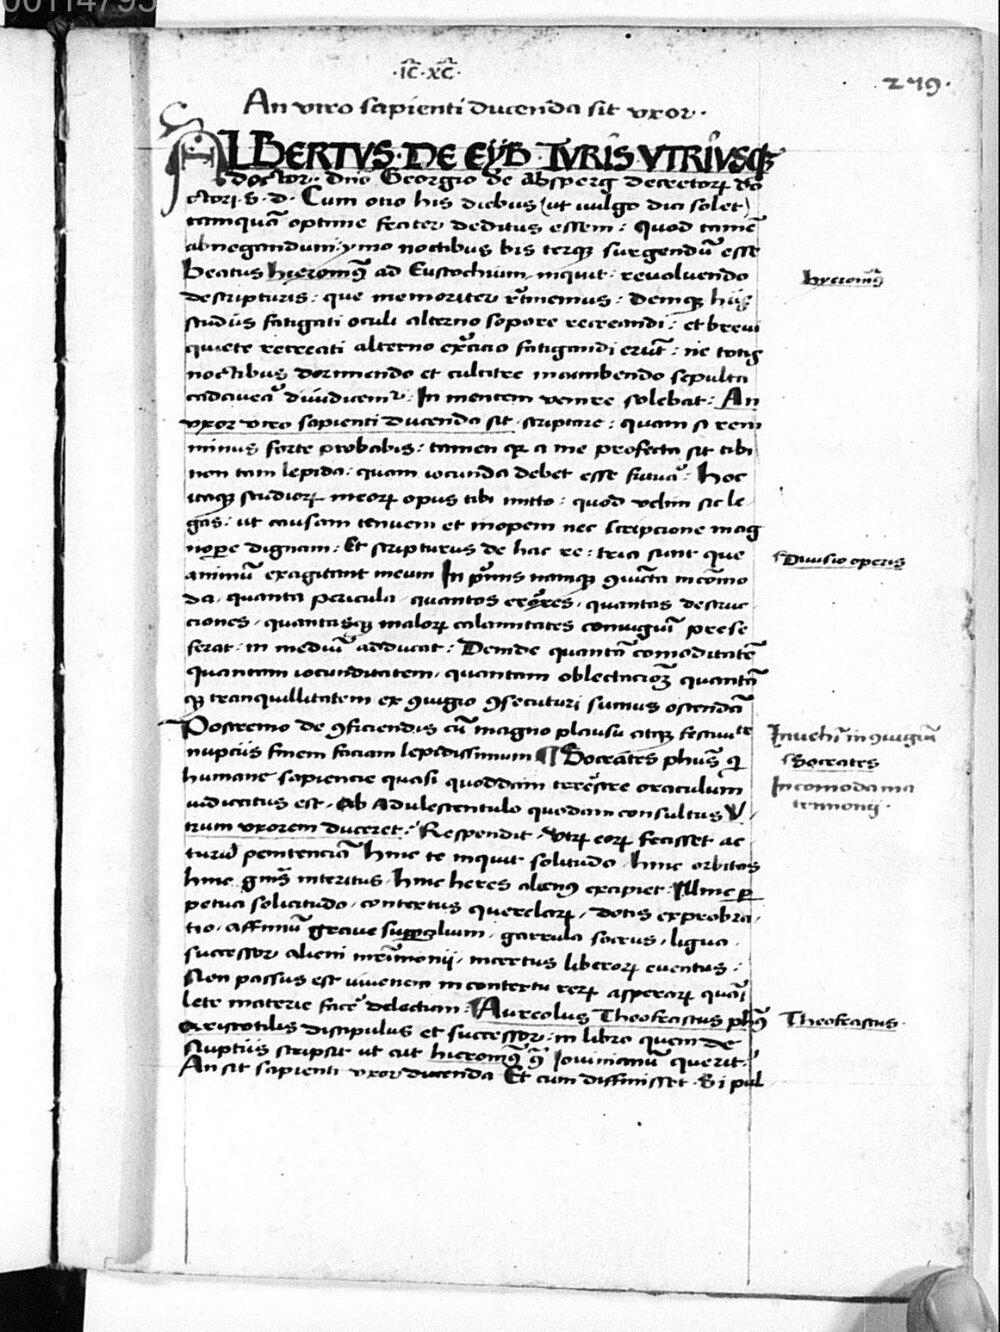 00114795
·ic̄·xc̄·
279·
An viro sapienti ducenda sit vxor·
ALBERTVS·DE EYB·IVRIS VTRIVSQꝫ
doctor· Dn̄o Georgio de absperg decretoꝝ do
ctori·s·d· Cum otio his diebus (ut uulgo dici solet)
tamquā optime feriter deditus essem: quod tamē
abnegandum: ymo noctibus bis terqꝫ surgendū esse
Beatus hieronimꝰ ad Eustochium inquit: reuoluendo
Hyeronimꝰ
de scripturis: que memoriter retinemus: Demqꝫ hiis
studiis fatigati oculi alterno sopore recreandi: et breui
quiete recreati alterno exercicio fatigandi erūt: ne totis
noctibus dormiendo et culcitre incumbendo sepulta
cadauera diiudicemur: In mentem venire solebat: An
vxor viro sapienti ducenda sit scriptare: quam si rem
minus forte probabis: tamen qꝛ a me profecta sit tibi
non tam lepida: quam iocunda debet esse futura: Hoc
itaqꝫ studioꝝ meoꝝ opus tibi mitto: quod velim sic le
gas: ut causam tenuem et inopem nec scripcione mag
nopere dignam: Et scripturus de hac re: tria sunt que
Diuisio operis
animū exagitant meum In primis namqꝫ ꝯiuncta incōmo
da, quanta pericula, quantos errores, quantas destruc
ciones, quantasqꝫ maloꝝ calamitates coniugiū prese
ferat: in mediū adducat: Deinde quantā comoditatē
quantam iocunditatem, quantam oblectacionē quantā
qꝫ tranquillitatem ex ꝯiugio ꝯsecuturi sumus ostendā
Postremo de ꝯficiendis cū magno plausu atqꝫ festiuitate
Inuehit in ꝯiugium
nuptiis finem faciam lepidissimum ¶ Socrates phūs qui
Socrates
humane sapiencie quasi quoddam terrestre oraculum
Incomoda ma
iudicatus est, Ab Adulescentulo quodam consultus V
trimonij·
trum vxorem duceret: Respondit· vtrum eoꝝ fecisset ac
turum penitenciā hinc te inquit solitudo, hinc orbitas
hinc generis interitus, hinc heres alienus excipiet: Illinc per
petua solicitudo, contextus querelaꝝ, dotis exprobra,
tio, affinium graue supercilium, garrula socrus, ligua,
successor alieni matrimonij, incertus liberoꝝ euentus:
Non passus est iuuenem in contextu reꝝ asperaꝝ quasi
lete materie facere delectum: Aureolus Theofrastus phūs
Theofrastus·
Aristotilis discipulus et successor: in libro quem de
Nuptiis scripsit ut ait hieronimꝰ ꝯtra Iouinianū querit:
An sit sapienti vxor ducenda Et cum diffinisset· Si pul